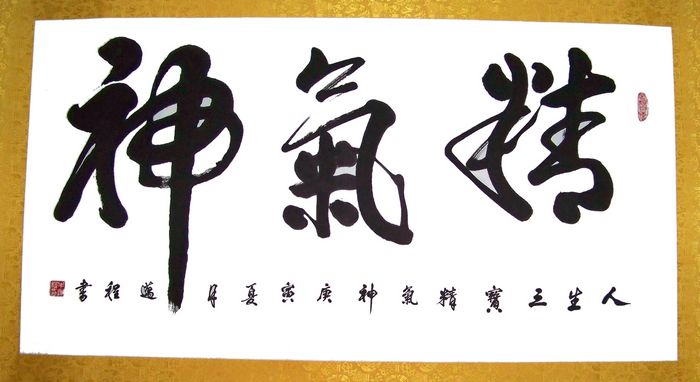 精氣神
人生三寶精氣神庚寅夏月邁程書